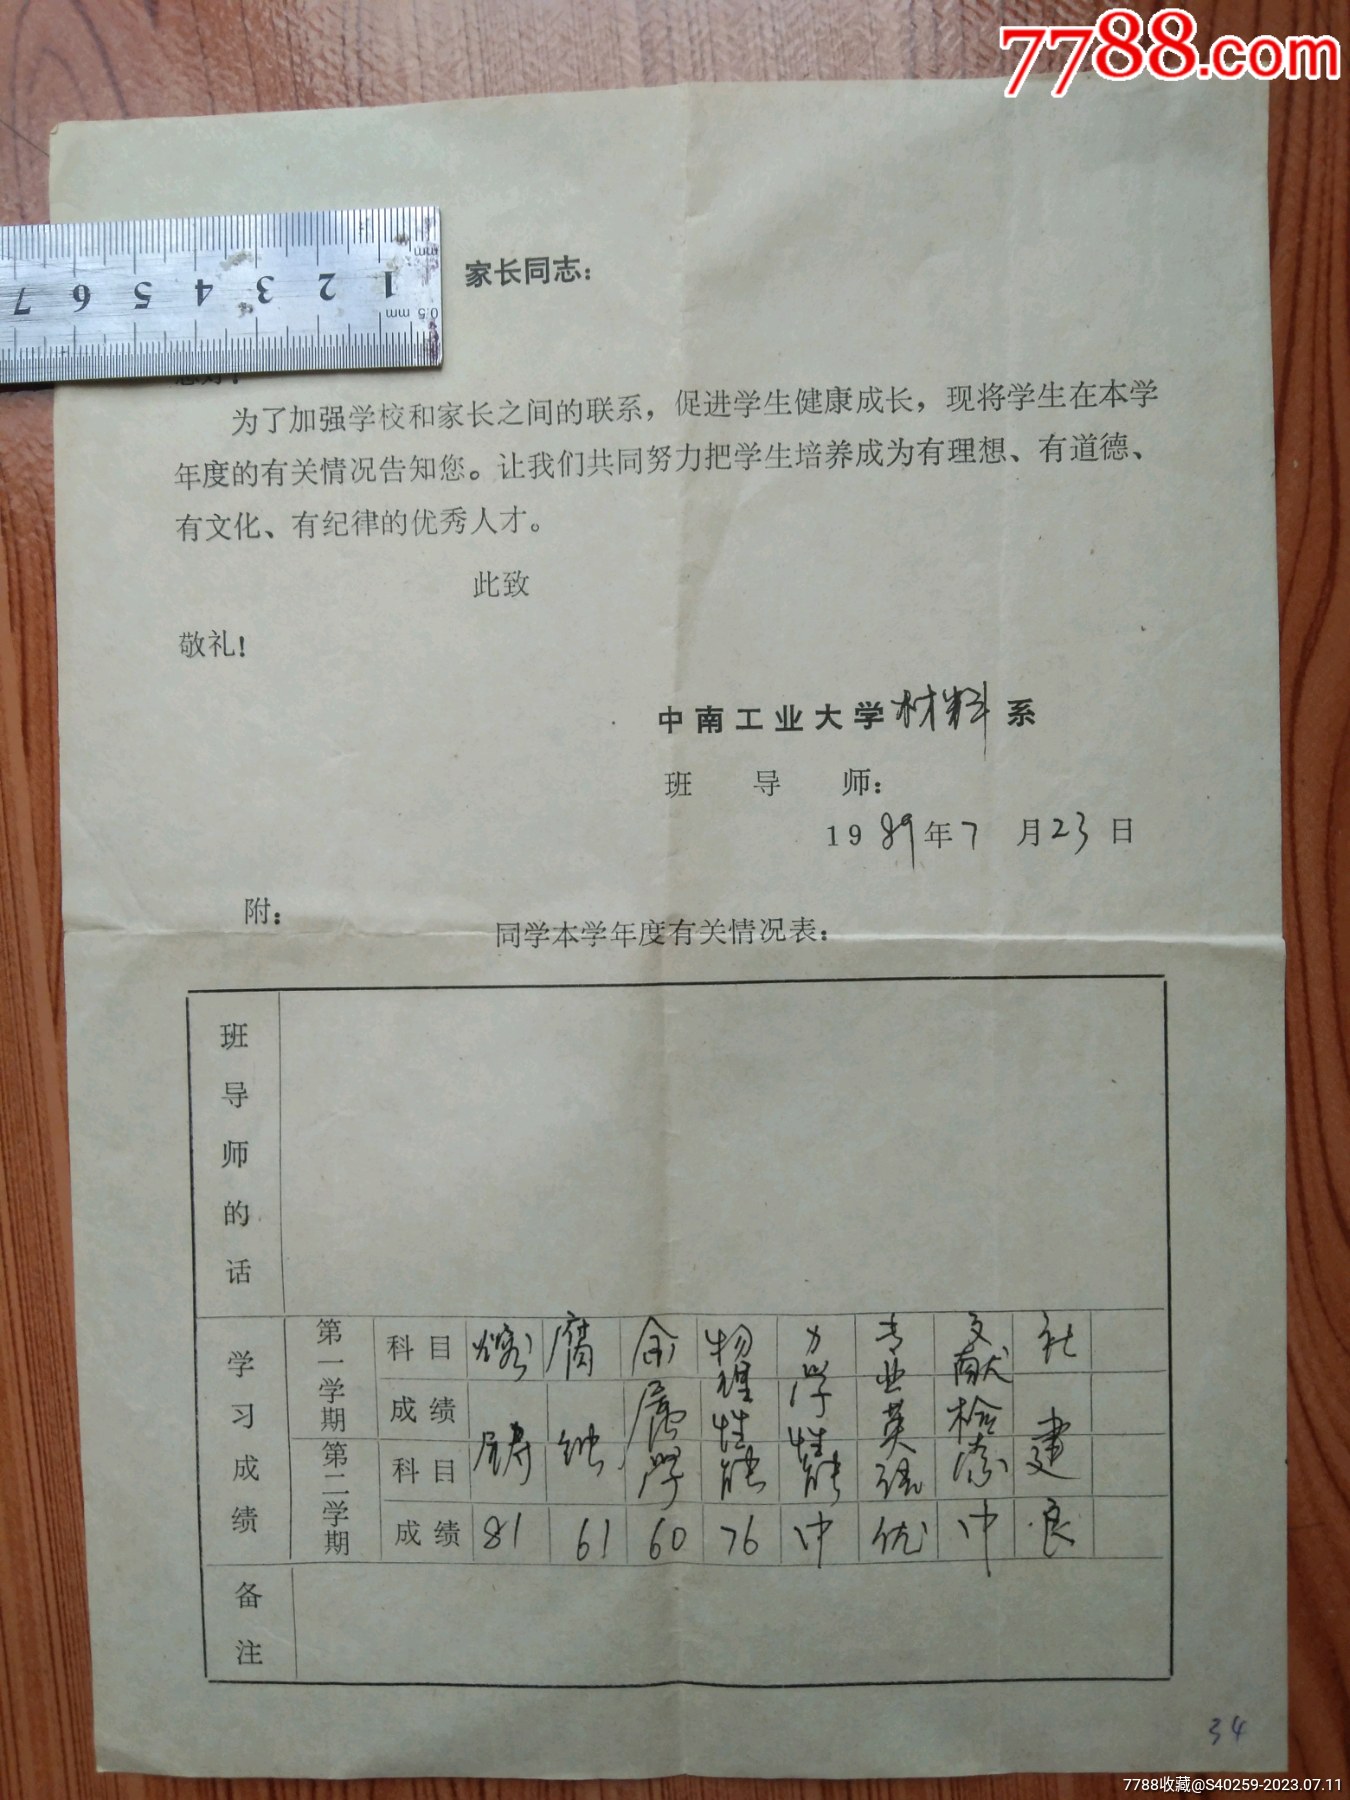 7788.com
1 2 3 4 5 6 7
mm
0.5 mm
家长同志：
为了加强学校和家长之间的联系，促进学生健康成长，现将学生在本学
年度的有关情况告知您。让我们共同努力把学生培养成为有理想、有道德、
有文化、有纪律的优秀人才。
此致
敬礼！
中南工业大学材料系
班导师：
1989年7月23日
附：
同学本学年度有关情况表：
班导师的话
学习成绩
第一学期
科目
成绩
第二学期
科目
成绩
熔铸 腐蚀 金属学 物理性能 力学性能 专业英语 文献检索 社建
81 61 60 76 中 优 中 良
备注
34
7788收藏@S40259-2023.07.11